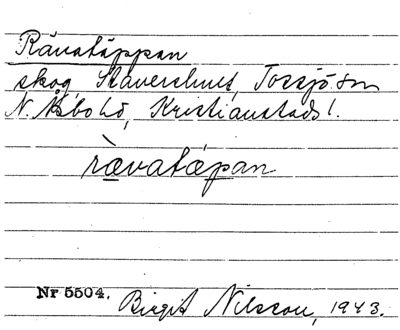 Rävatäppan
skog, Stavershult, Torsjö sn
N. Åsbo hd, Kristianstads l.
rävatäpan
Nr 5504. Birgit Nilsson, 1943.